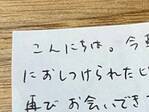 こんにちは。今
におしつけられたじ
再びお会いできて